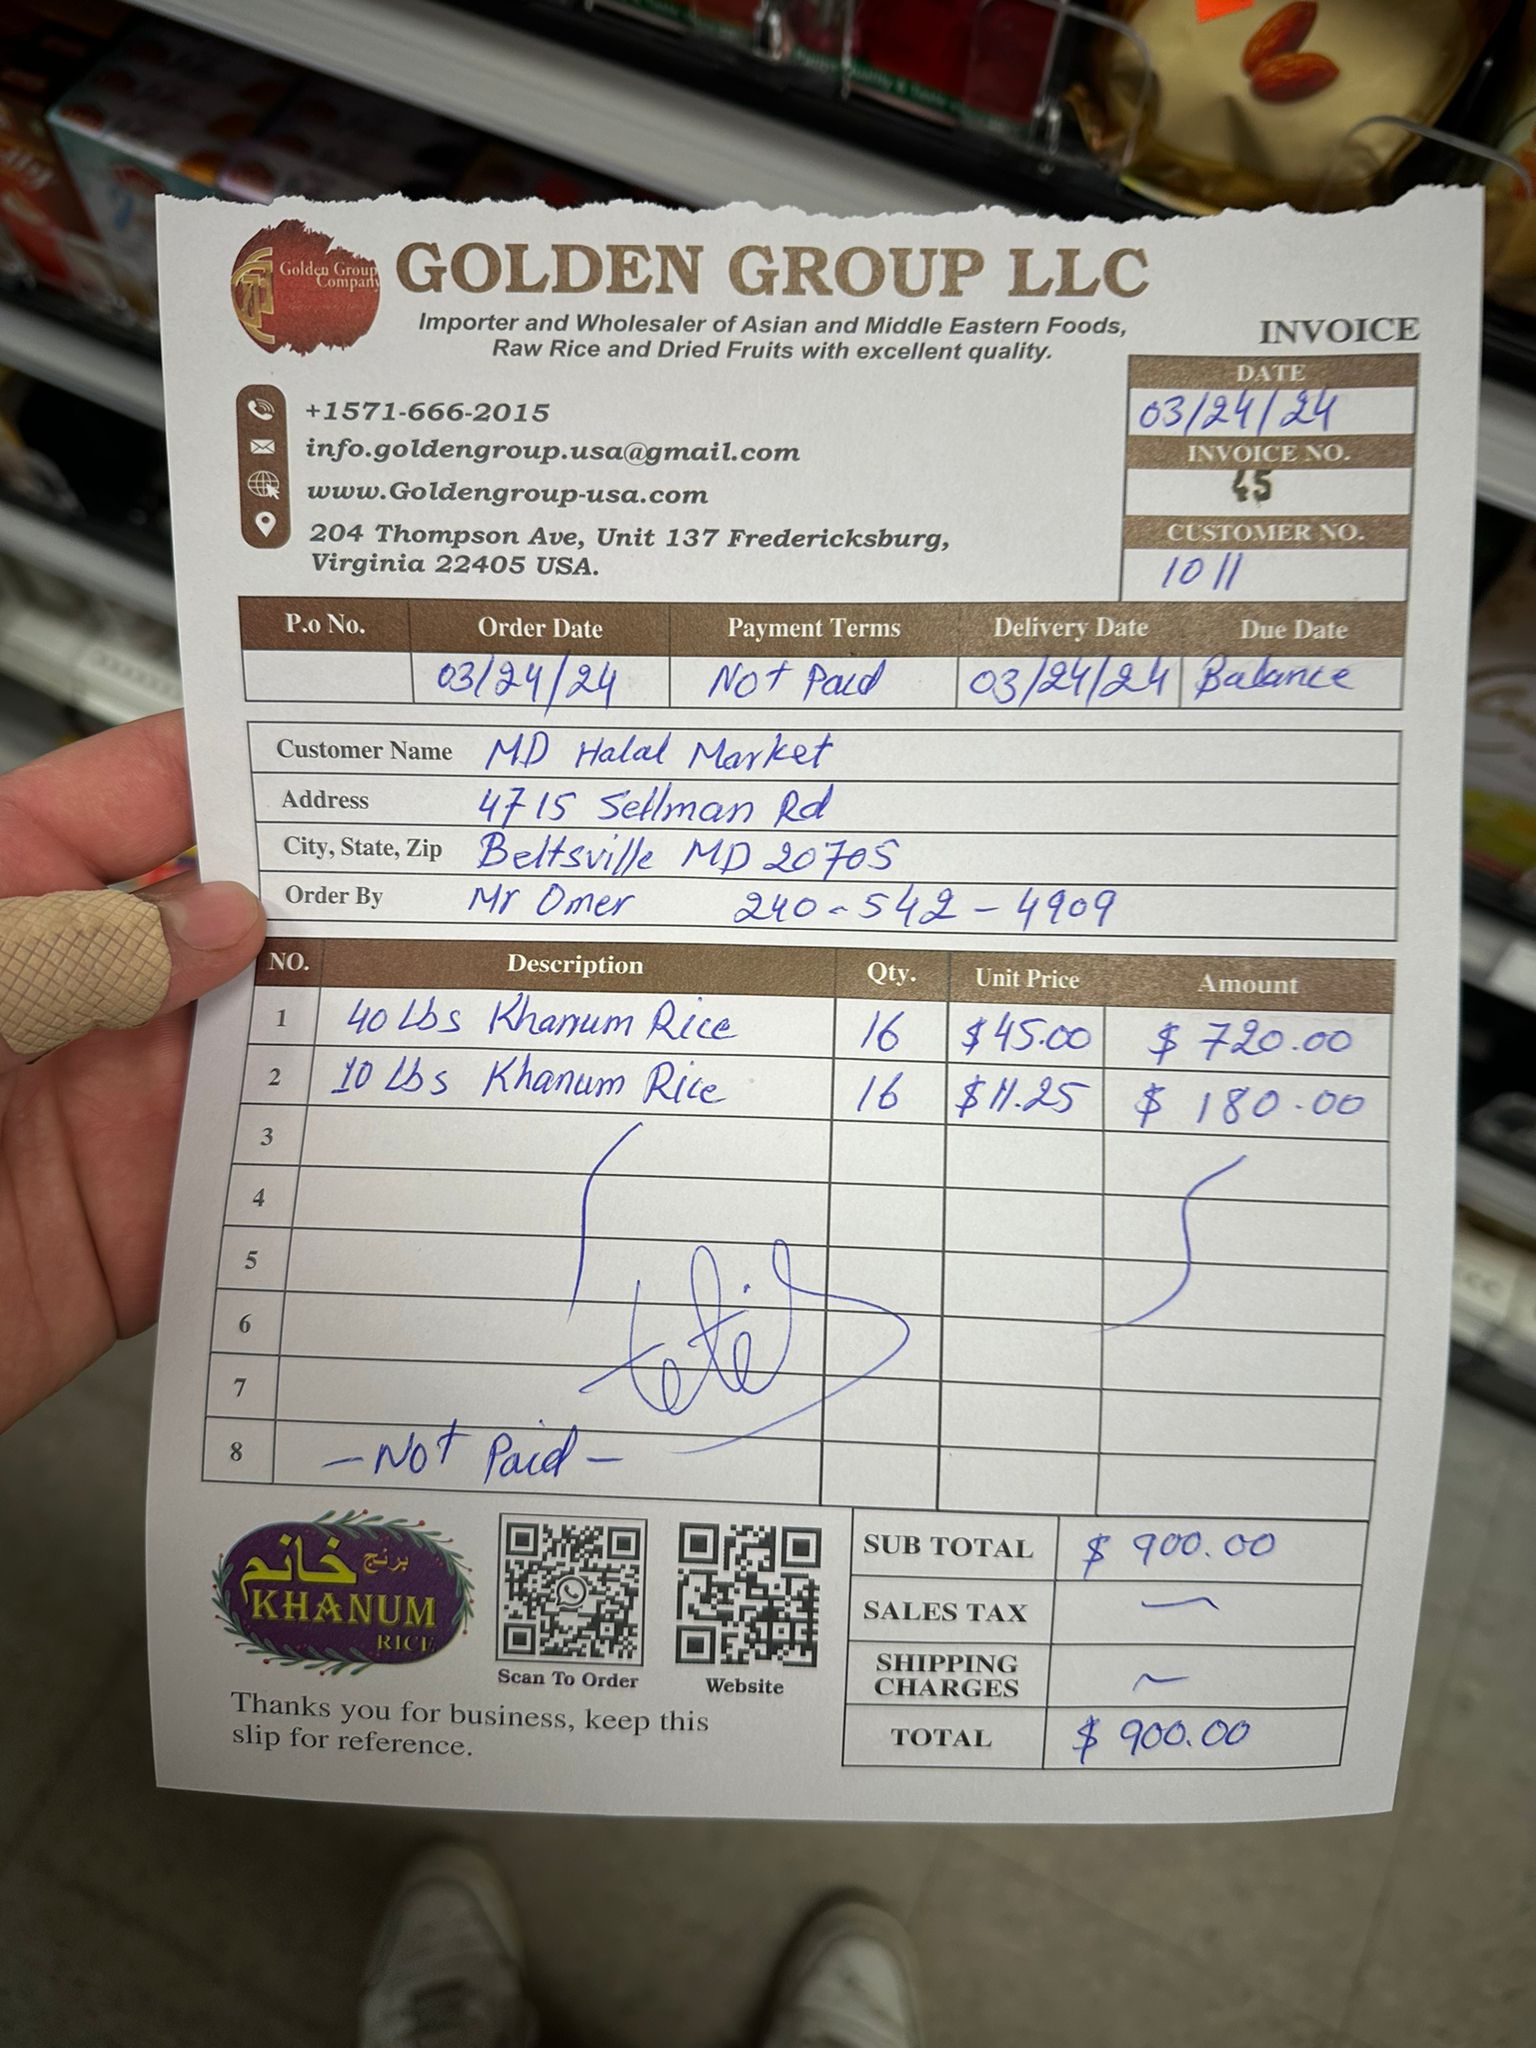 Golden Group
Company
GOLDEN GROUP LLC
Importer and Wholesaler of Asian and Middle Eastern Foods,
Raw Rice and Dried Fruits with excellent quality.
INVOICE
+1571-666-2015
info.goldengroup.usa@gmail.com
www.Goldengroup-usa.com
204 Thompson Ave, Unit 137 Fredericksburg,
Virginia 22405 USA.
DATE
03/24/24
INVOICE NO.
45
CUSTOMER NO.
1011
P.o No. Order Date Payment Terms Delivery Date Due Date
03/24/24 Not Paid 03/24/24 Balance
Customer Name MD Halal Market
Address 4715 Sellman Rd
City, State, Zip Beltsville MD 20705
Order By Mr Omer 240-542-4909
NO. Description Qty. Unit Price Amount
1 40 Lbs Khanum Rice 16 $45.00 $720.00
2 10 Lbs Khanum Rice 16 $11.25 $180.00
3
4
5
6
7
8 - Not Paid -
برنج
خانم
KHANUM
RICE
Scan To Order
Website
Thanks you for business, keep this
slip for reference.
SUB TOTAL $900.00
SALES TAX —
SHIPPING
CHARGES ~
TOTAL $900.00